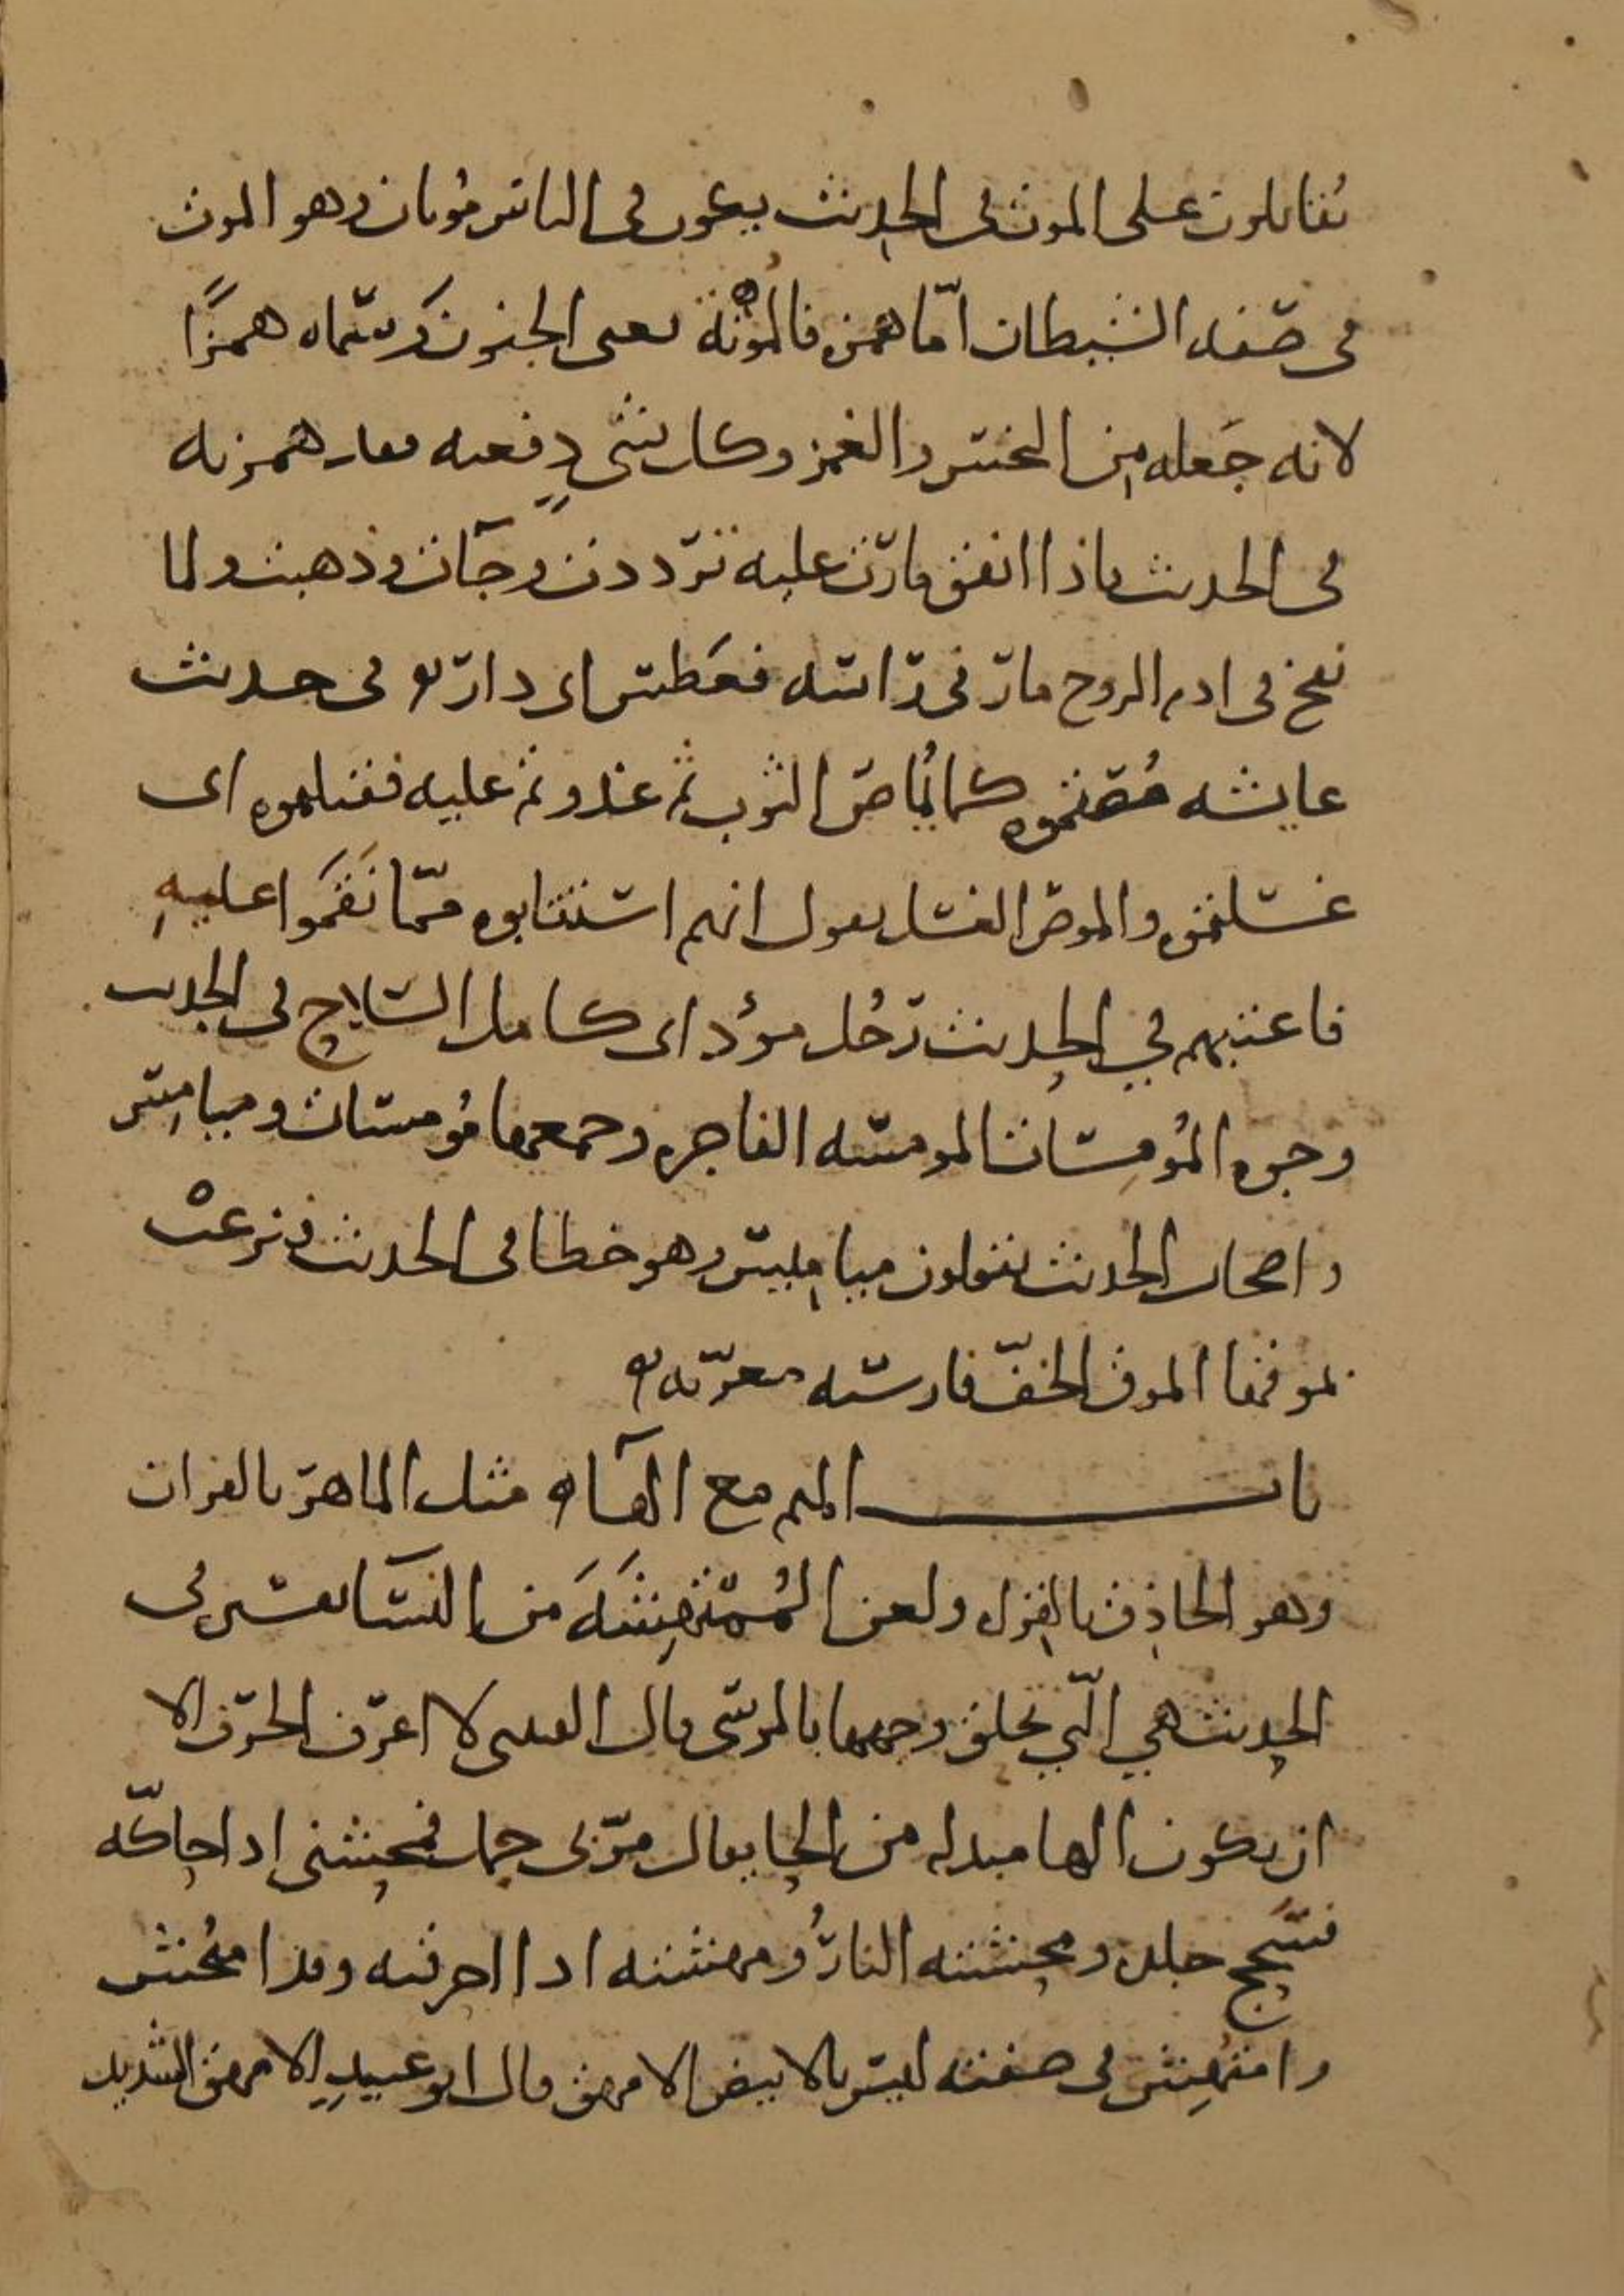 تقاتلون على الموت في الحديث يكون في الناس موتان وهو الموت
في صفة الشيطان اما همزه فالموتة يعنى الجنون وسماه همزا
لانه جعله من النخس والغمز وكل شى دفعه فقد همزته
في الحديث فاذا انفق مارت عليه ترددت وجآت وذهبت ولما
نفخ في ادم الروح مار في راسه فعطس اى دار في حديث
عايشه مصتموه كما يماص الثوب ثم عدوتم عليه فقتلتموه اى
غسلتموه والموص الغسل يقول انهم استتابوه مما نقموا عليه
فاعتبهم في الحديث رجل مؤد اى كامل السلاح في الحديث
وجوه المومسات المومسه الفاجره وجمعها مومسات وميامس
واصحاب الحديث يقولون مياميس وهو خطا في الحديث فنزعت
موقها الموق الخف فارسيه معربه
باب الميم مع الهآ مثل الماهر بالقران
وهو الحاذق بالقراه ولعن الممتهشة من النسا تفسيره في
الحديث هي التي تحلق وجهها بالموسى قال القتبي لا اعرف الحرف الا
ان يكون الها مبدله من الحا يقال مر بي جمل فمحشنى اذا حاكه
فسحج جلده ومحشته النار ومهشته اذا احرقته وقد امتحش
وامتهش في صفته ليس بالابيض الامهق قال ابو عبيد الامهق الشديد